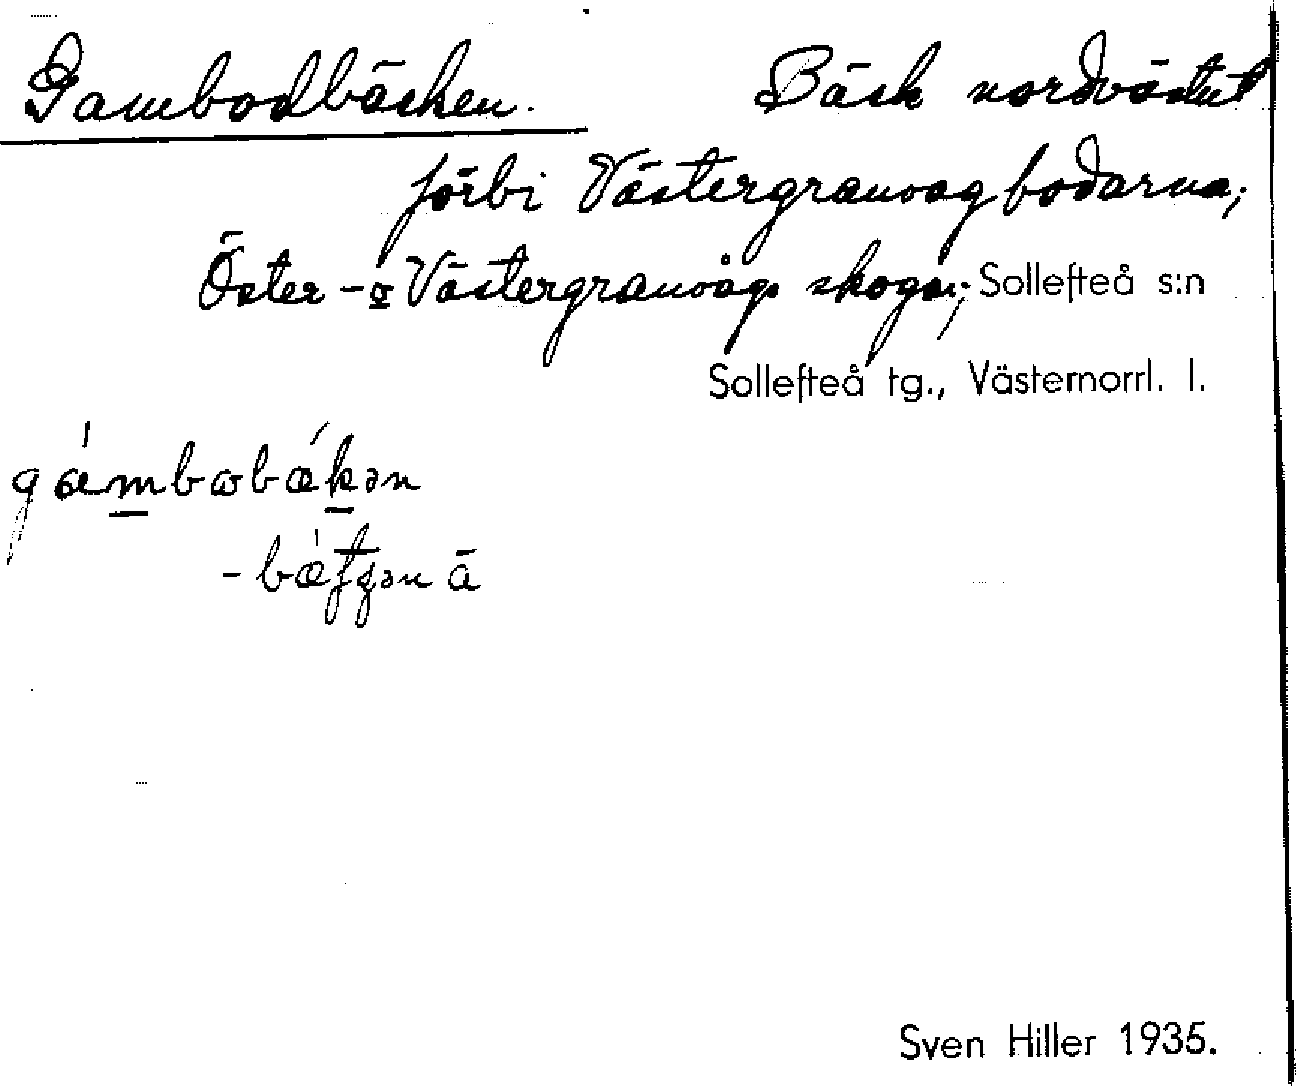 Gambodbäcken. Bäck nordvästut
förbi Västergranvåg bodarna;
Öster- o Västergranvågs skogar; Sollefteå s:n
Sollefteå tg., Västernorrl. l.
gámbωbǽkən
-bǽtɟən ā
Sven Hiller 1935.